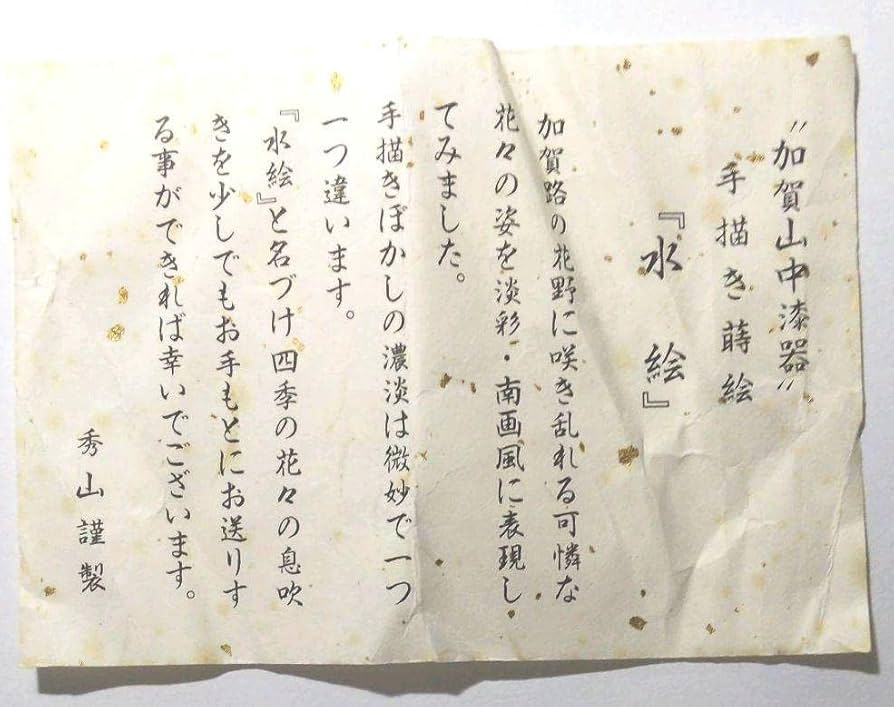 〃加賀山中漆器〃
手描き蒔絵
『水絵』
加賀路の花野に咲き乱れる可憐な
花々の姿を淡彩・南画風に表現し
てみました。
手描きぼかしの濃淡は微妙で一つ
一つ違います。
『水絵』と名づけ四季の花々の息吹
きを少しでもお手もとにお送りす
る事ができれば幸いでございます。
秀山謹製